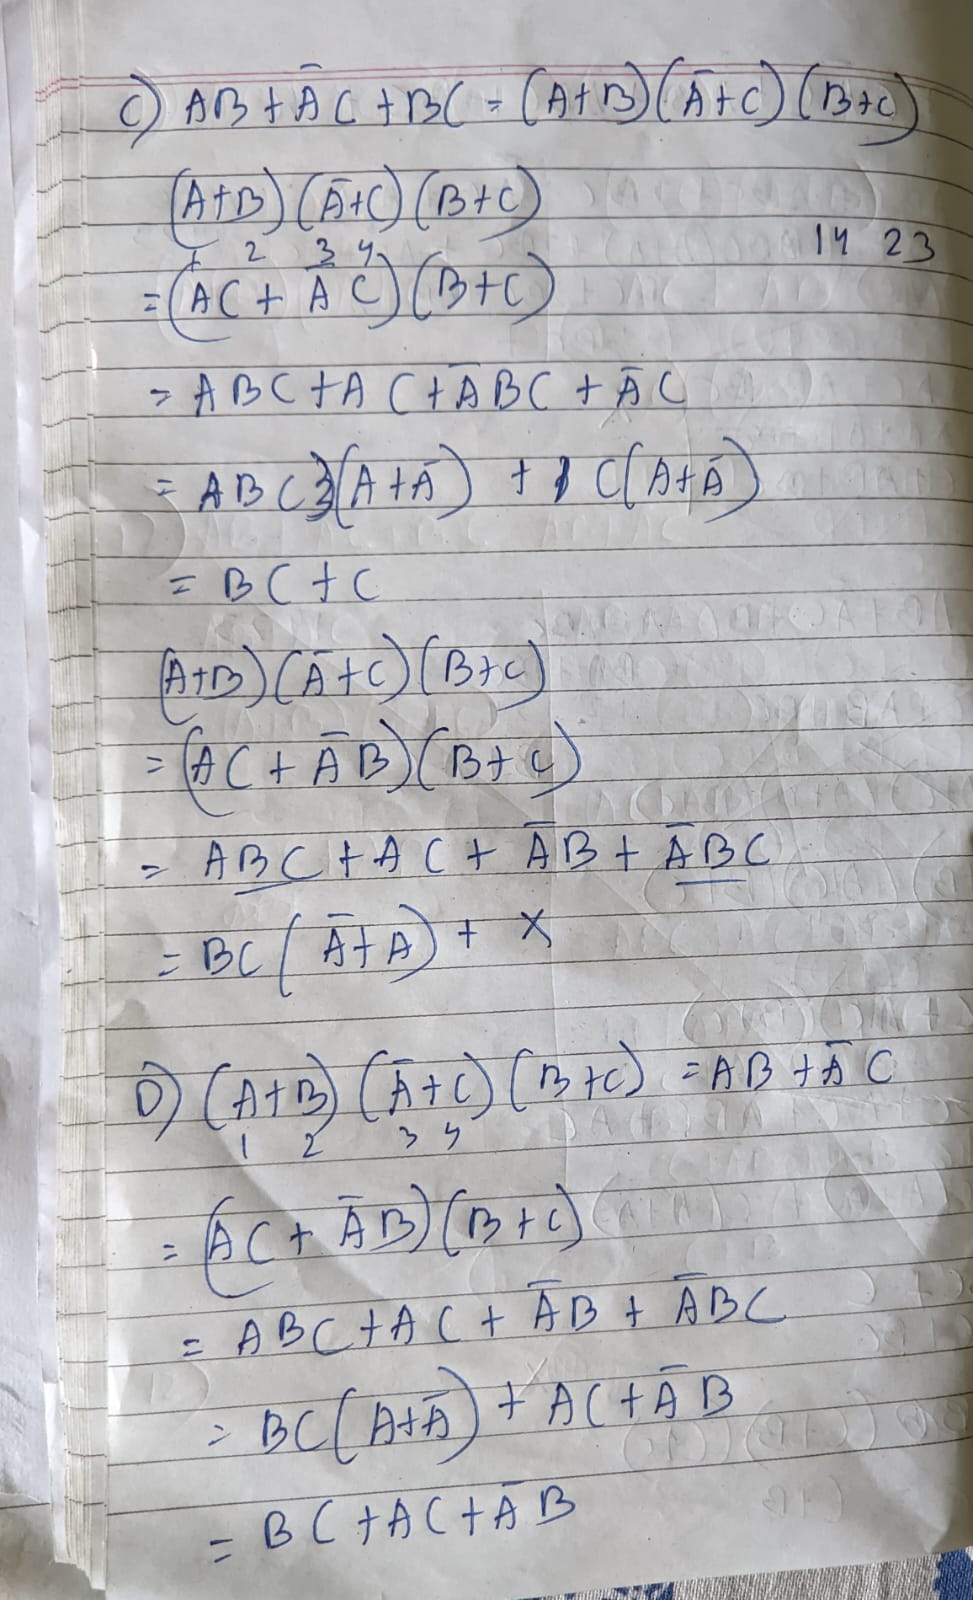 C) AB + A̅C + BC = (A+B)(A̅+C)(B+C)
(A+B)(A̅+C)(B+C)
1 2 3 4 14 23
= (AC + A̅C)(B+C)
= ABC + AC + A̅BC + A̅C
= ABC(A+A̅) + C(A+A̅)
= BC + C
(A+B)(A̅+C)(B+C)
= (AC + A̅B)(B+C)
= ABC + AC + A̅B + A̅BC
= BC(A̅+A) + X
D) (A+B)(A̅+C)(B+C) = AB + A̅C
1 2 3 4
= (AC + A̅B)(B+C)
= ABC + AC + A̅B + A̅BC
= BC(A+A̅) + AC + A̅B
= BC + AC + A̅B